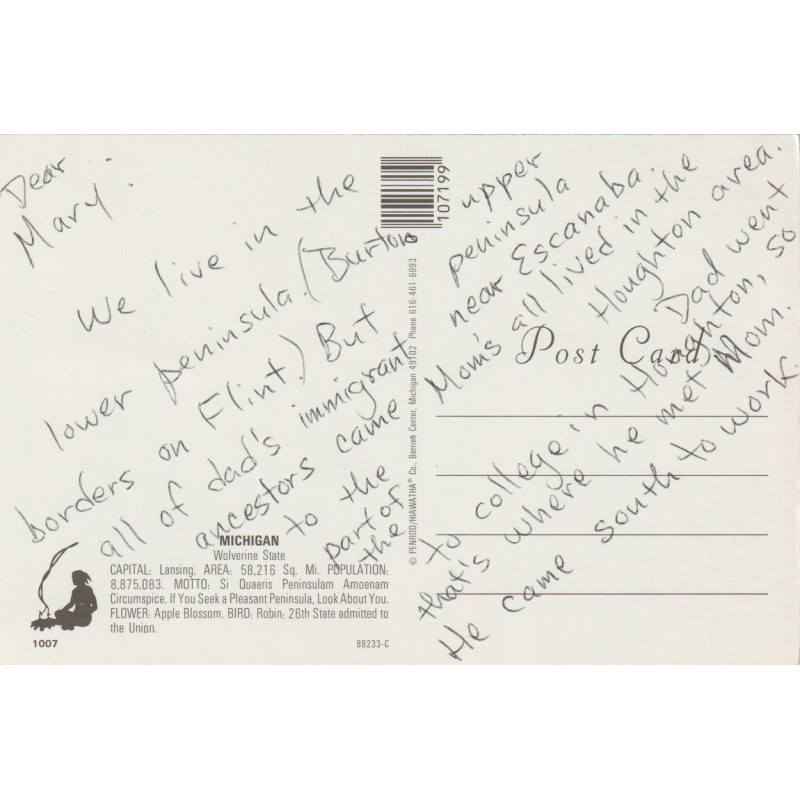 Dear
Mary:
We live in the
lower peninsula. (Burton
borders on Flint.) But
all of dad's immigrant
ancestors came
to the
part of
the
upper
peninsula
near Escanaba.
Mom's all lived in the
Houghton area.
Dad went
to college in Houghton, so
that's where he met Mom.
He came south to work.
107199
Post Card
© PENROD/HIAWATHA® Co., Berrien Center, Michigan 49102 Phone 616-461-6993
MICHIGAN
Wolverine State
CAPITAL: Lansing. AREA: 58,216 Sq. Mi. POPULATION:
8,875,083. MOTTO: Si Quaeris Peninsulam Amoenam
Circumspice. If You Seek a Pleasant Peninsula, Look About You.
FLOWER: Apple Blossom. BIRD: Robin: 26th State admitted to
the Union.
1007
88233-C